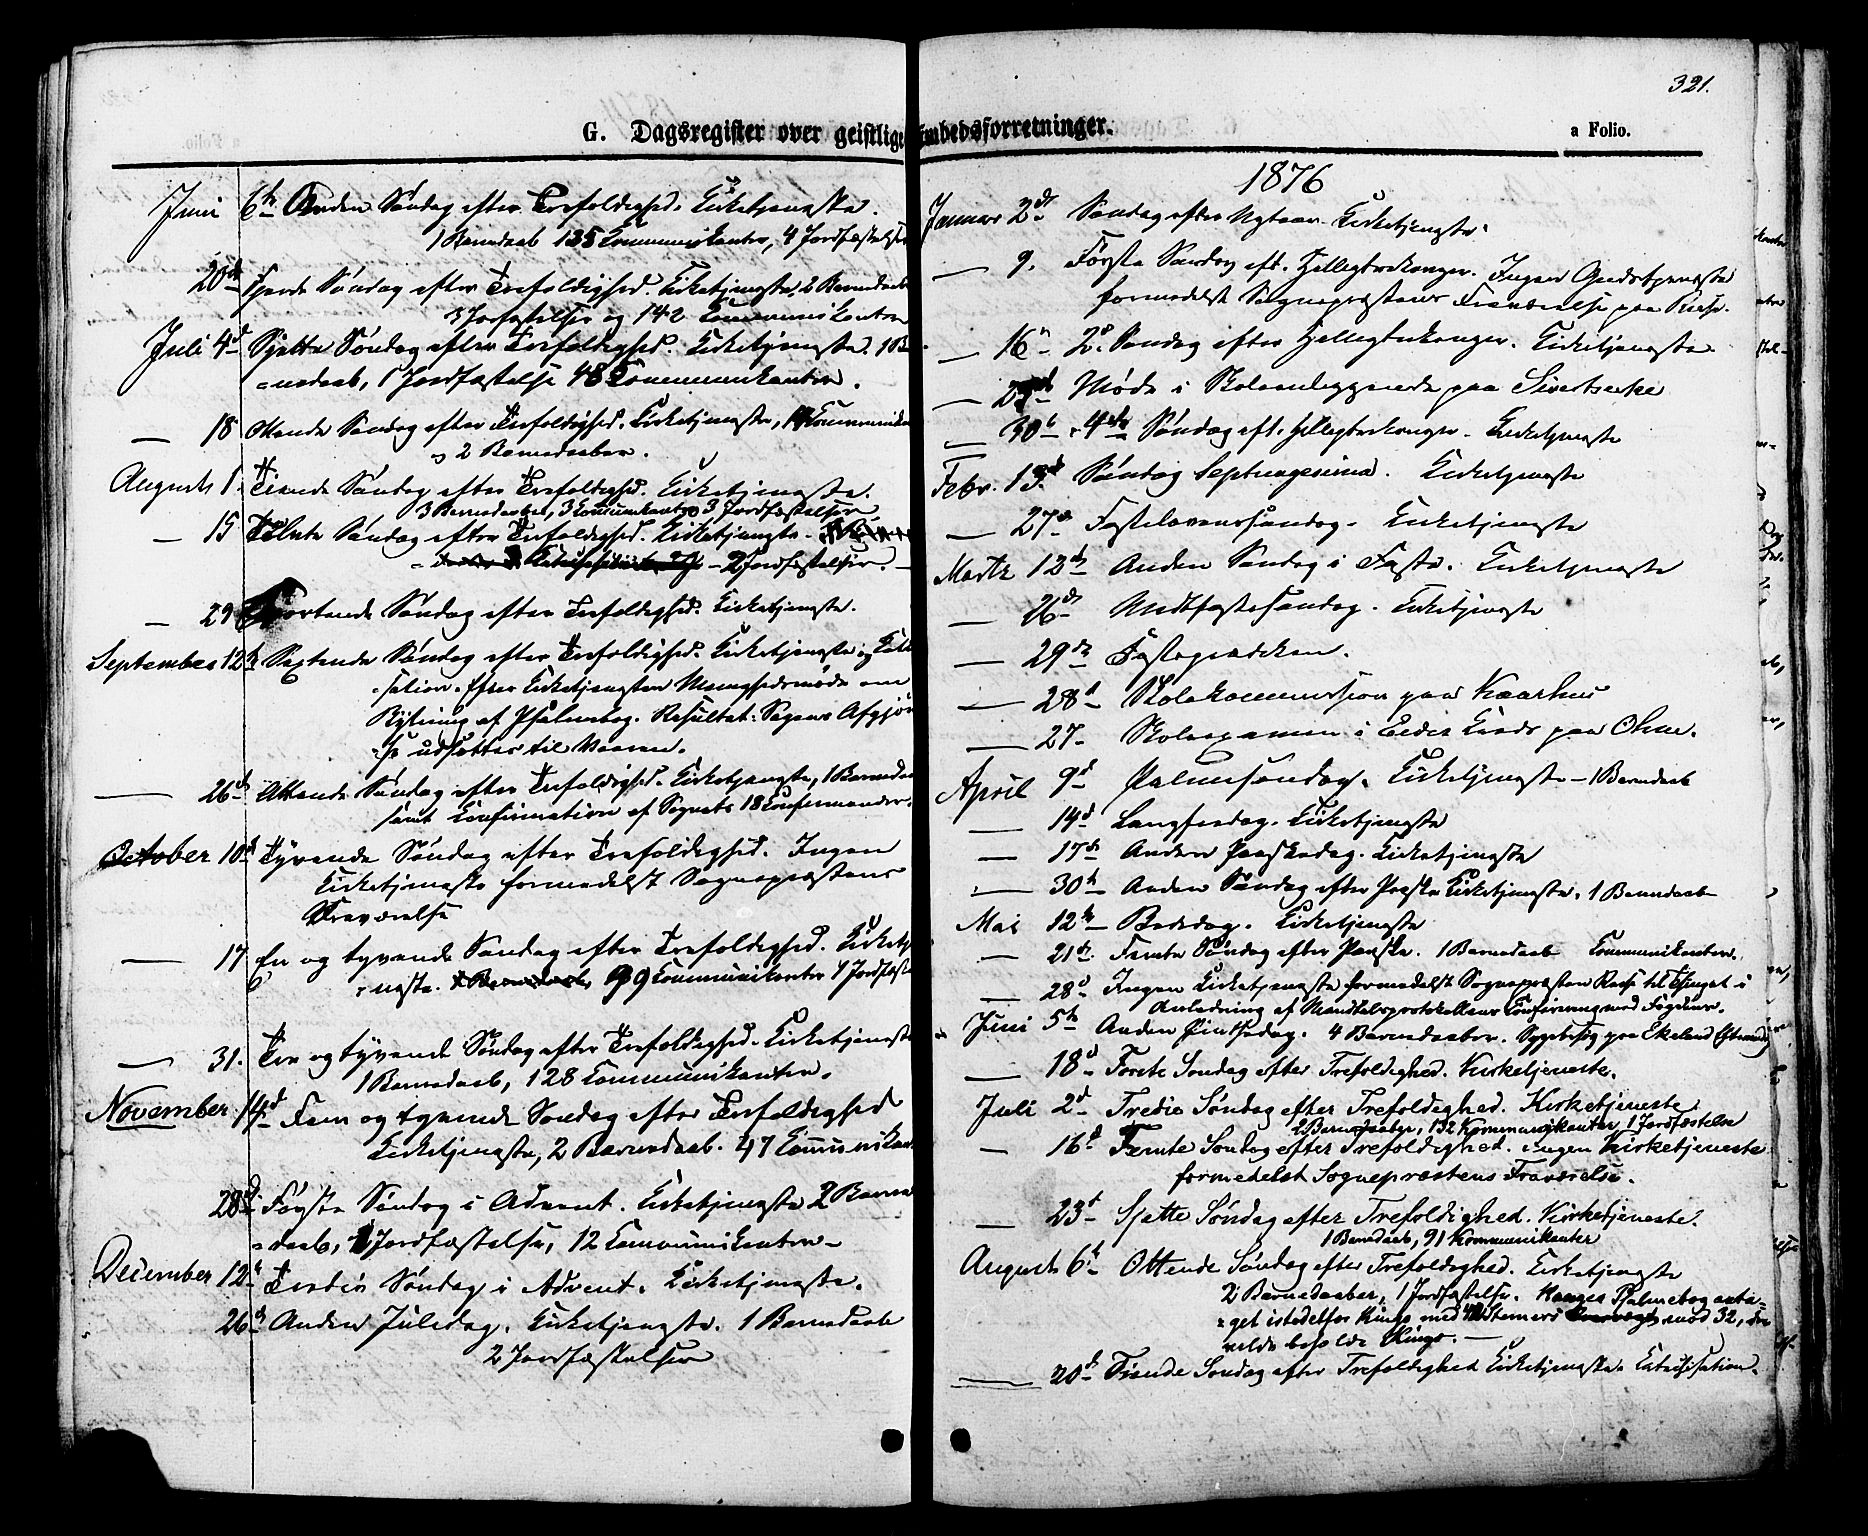 321.
G. Dagsregister over geistlige Embedsforretninger.
a Folio.
Juni 6te Anden Søndag efter Trefoldighed. Kirketjeneste.
1 Barnedaab 135 Communikanter, 4 Jordfæstelser
20de Fjerde Søndag efter Trefoldighed. Kirketjeneste, 2 Barnedaab
3 Jordfæstelser og 142 Communikanter
Juli 4d Sjette Søndag efter Trefoldighed. Kirketjeneste. 1 Bar
=nedaab, 1 Jordfæstelse 48 Communikanter.
— 18 Ottende Søndag efter Trefoldighed. Kirketjeneste, Communika
2 Barnedaaber.
Augusts 1. Tiende Søndag efter Trefoldighed. Kirketjeneste.
3 Barnedaaber, 3 Communikanter 3 Jordfæstelser
— 15 Tolvte Søndag efter Trefoldighed. Kirketjeneste.
— 2 Jordfæstelser —
— 29 Fjortende Søndag efter Trefoldighed. Kirketjeneste.
September 12te Sextende Søndag efter Trefoldighed. Kirketjeneste og Kate
=sation. Efter Kirketjenesten Menighedsmøde om
Bytning af Psalmebog. Resultat: Sagens Afgjørel
=se udsættes til Vaaren.
— 26de Attende Søndag efter Trefoldighed. Kirketjeneste, 1 Barnedaa
samt Confirmation af Sognets 18 Confirmander.
October 10de Tyvende Søndag efter Trefoldighed. Ingen
Kirketjeneste formedelst Sognepræstens
Fraværelse
— 17 En og tyvende Søndag efter Trefoldighed. Kirketje
=neste. 1 Barnedaab, 99 Communikanter 1 Jordfæste
— 31. Tre og tyvende Søndag efter Trefoldighed. Kirketjeneste
1 Barnedaab, 128 Communikanter.
November 14d Fem og tyvende Søndag efter Trefoldighed
Kirketjeneste, 2 Barnedaab. 47 Communikan
28de Første Søndag i Advent. Kirketjeneste 2 Barne
=daab, 1 Jordfæstelse, 12 Communikanter —
December 12te Tredie Søndag i Advent. Kirketjeneste.
26de Anden Juledag. Kirketjeneste. 1 Barnedaab
2 Jordfæstelser
1876
Januar 2de Søndag efter Nytaar. Kirketjeneste.
— 9. Første Søndag eft. Helligtrekonger. Ingen Gudstjeneste
formedelst Sognepræstens Fraværelse paa Reise.
— 16 2d Søndag efter Helligtrekonger. Kirketjeneste.
— Møde i Skoleanliggende paa
— 30te 4de Søndag eft. Helligtrekonger. Kirketjeneste
Febr. 13d Søndag Septuagesima. Kirketjeneste
— 27de Fastelavenssøndag. Kirketjeneste
Martz 12te Anden Søndag i Faste. Kirketjeneste
— 26de Midtfastesøndag. Kirketjeneste
— 29de Fasteprædiken.
— 28d Skolekommission paa Kaarhus
— 27. Skoleexamen i Kreds paa Ohm.
April 9d Palmesøndag. Kirketjeneste — 1 Barnedaab
— 14d Langfredag. Kirketjeneste
— 17de Anden Paaskedag. Kirketjeneste
— 30te Anden Søndag efter Paaske Kirketjeneste. 1 Barnedaab
Mai 12te Bededag. Kirketjeneste
— 21de Femte Søndag efter Paaske. 1 Barnedaab Communikanter.
— 28d Ingen Kirketjeneste formedelst Sognepræsten Reise til Thinget i
Anledning af Mandtalsprotokollens Conferering med Fogden.
Juni 5te Anden Pintsedag. 4 Barnedaaber. Sygebesøg paa Ekeland Eftermidag
— 18d Forste Søndag efter Trefoldighed. Kirketjeneste.
Juli 2d Tredie Søndag efter Trefoldighed. Kirketjeneste
2 Barnedaaber, 132 Kommunikanter, 1 Jordfæstelse
— 16d Femte Søndag efter Trefoldighed. Ingen Kirketjeneste
formedelst Sognepræstens Fraværelse.
— 23d Sjette Søndag efter Trefoldighed. Kirketjeneste.
1 Barnedaab, 91 Kommunikanter
Augusts 6te Ottende Søndag efter Trefoldighed. Kirketjeneste
2 Barnedaaber, 1 Jordfæstelse. Hauges Psalmebog anta=
=get istedetfor Kingo med Stemmers mod 32, der
vilde beholde Kingo. —
— 20de Tiende Søndag efter Trefoldighed Kirketjeneste. Catechisation.